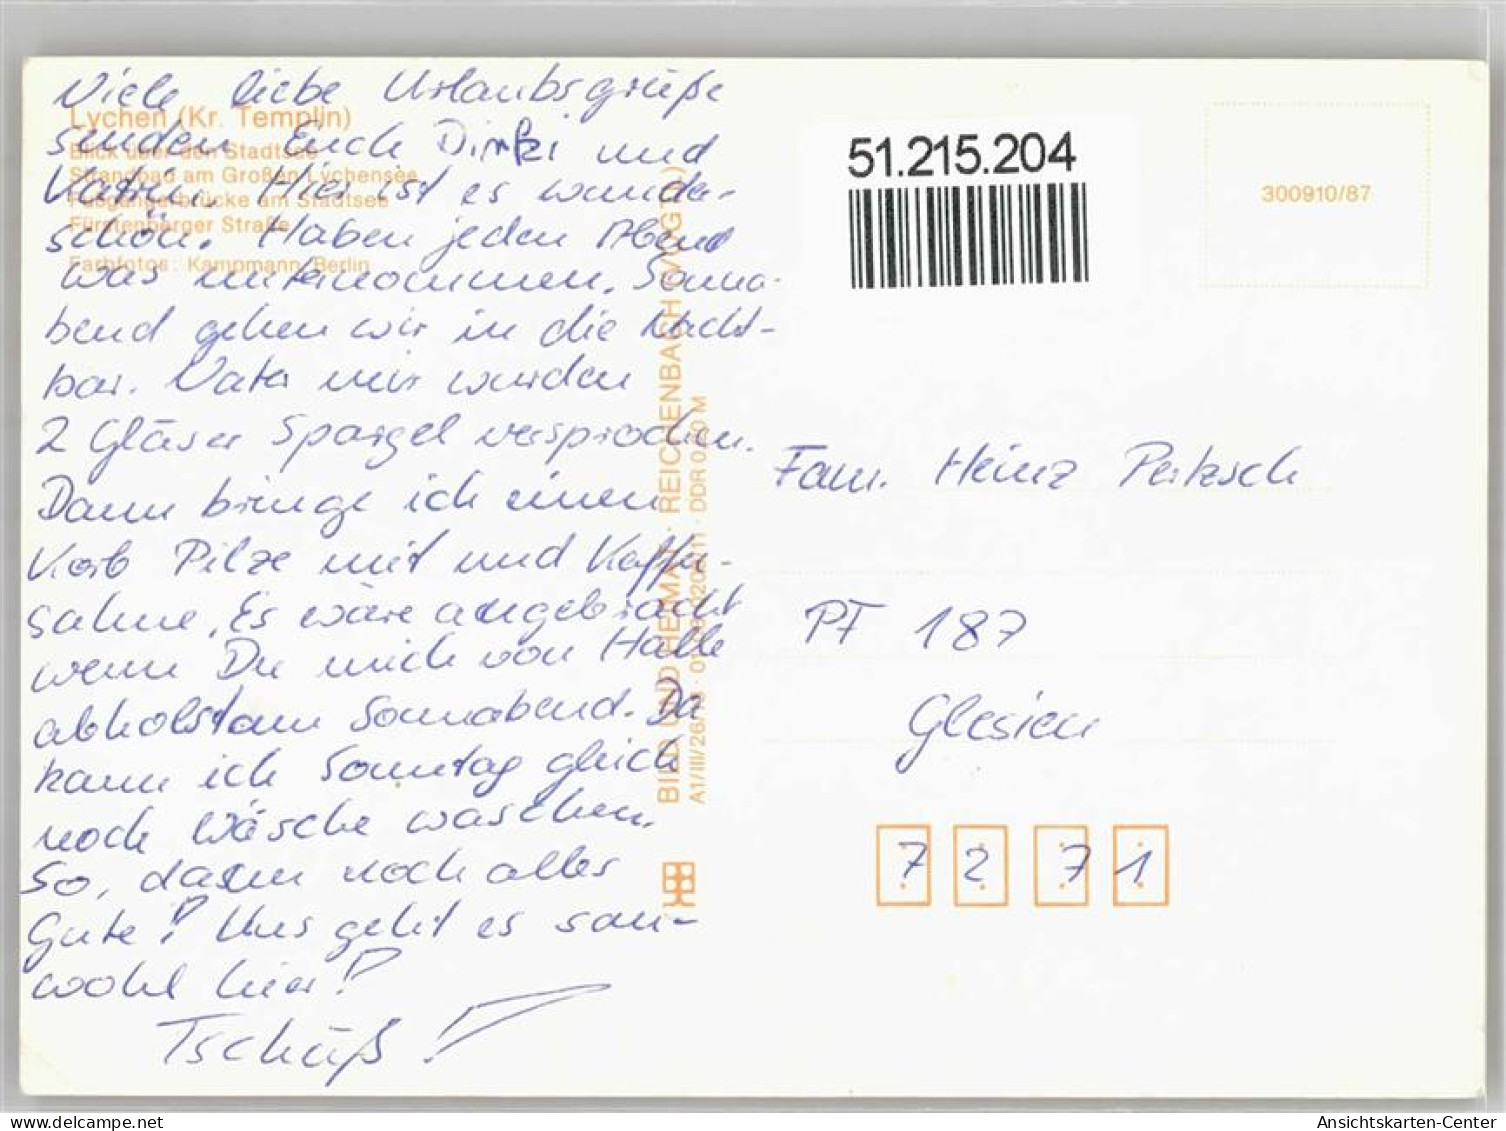 Viele liebe Urlaubsgrüße
senden Euch Dirki und
Katrin. Hier ist es wunder-
schön. Haben jeden Abend
was unternommen. Sonna-
bend gehen wir in die Nacht-
bar. Vater mir wurden
2 Gläser Spargel versprochen.
Dann bringe ich einen
Korb Pilze mit und Kaffee-
sahne. Es wäre angebracht
wenn Du mich von Halle
abholst am Sonnabend. Da
kann ich Sonntag gleich
noch Wäsche waschen.
So, dann noch alles
Gute! Uns geht es sau-
wohl hier!
Tschüß!
Lychen (Kr. Templin)
Blick über den Stadtsee
Strandbad am Großen Lychensee
Fußgängerbrücke am Stadtsee
Fürstenberger Straße
Farbfotos: Kampmann, Berlin
BILD UND HEIMAT · REICHENBACH (VOGTL)
A1/III/26/13 · DDR M
51.215.204
300910/87
Fam. Heinz Petzsch
PF 187
Glesien
7 2 7 1
Ansichtskarten-Center